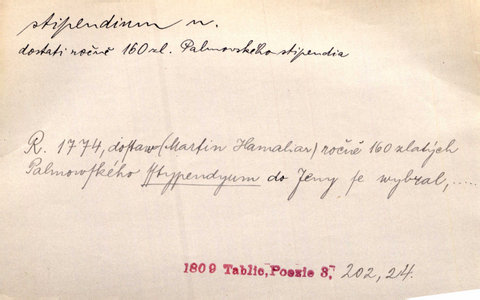 stipendium n.
dostati ročně 160 zl. Palmovského stipendia
R. 1774, dostaw (Martin Hamaliar) ročně 160 zlatých
Palmowského stypendyum do Jeny se wybral, .....
1809 Tablic, Poezie 3, 202, 24.